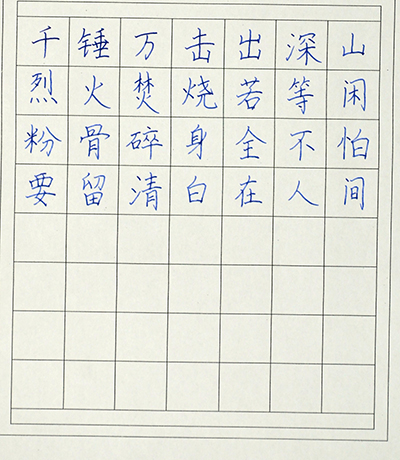 千锤万击出深山
烈火焚烧若等闲
粉骨碎身全不怕
要留清白在人间